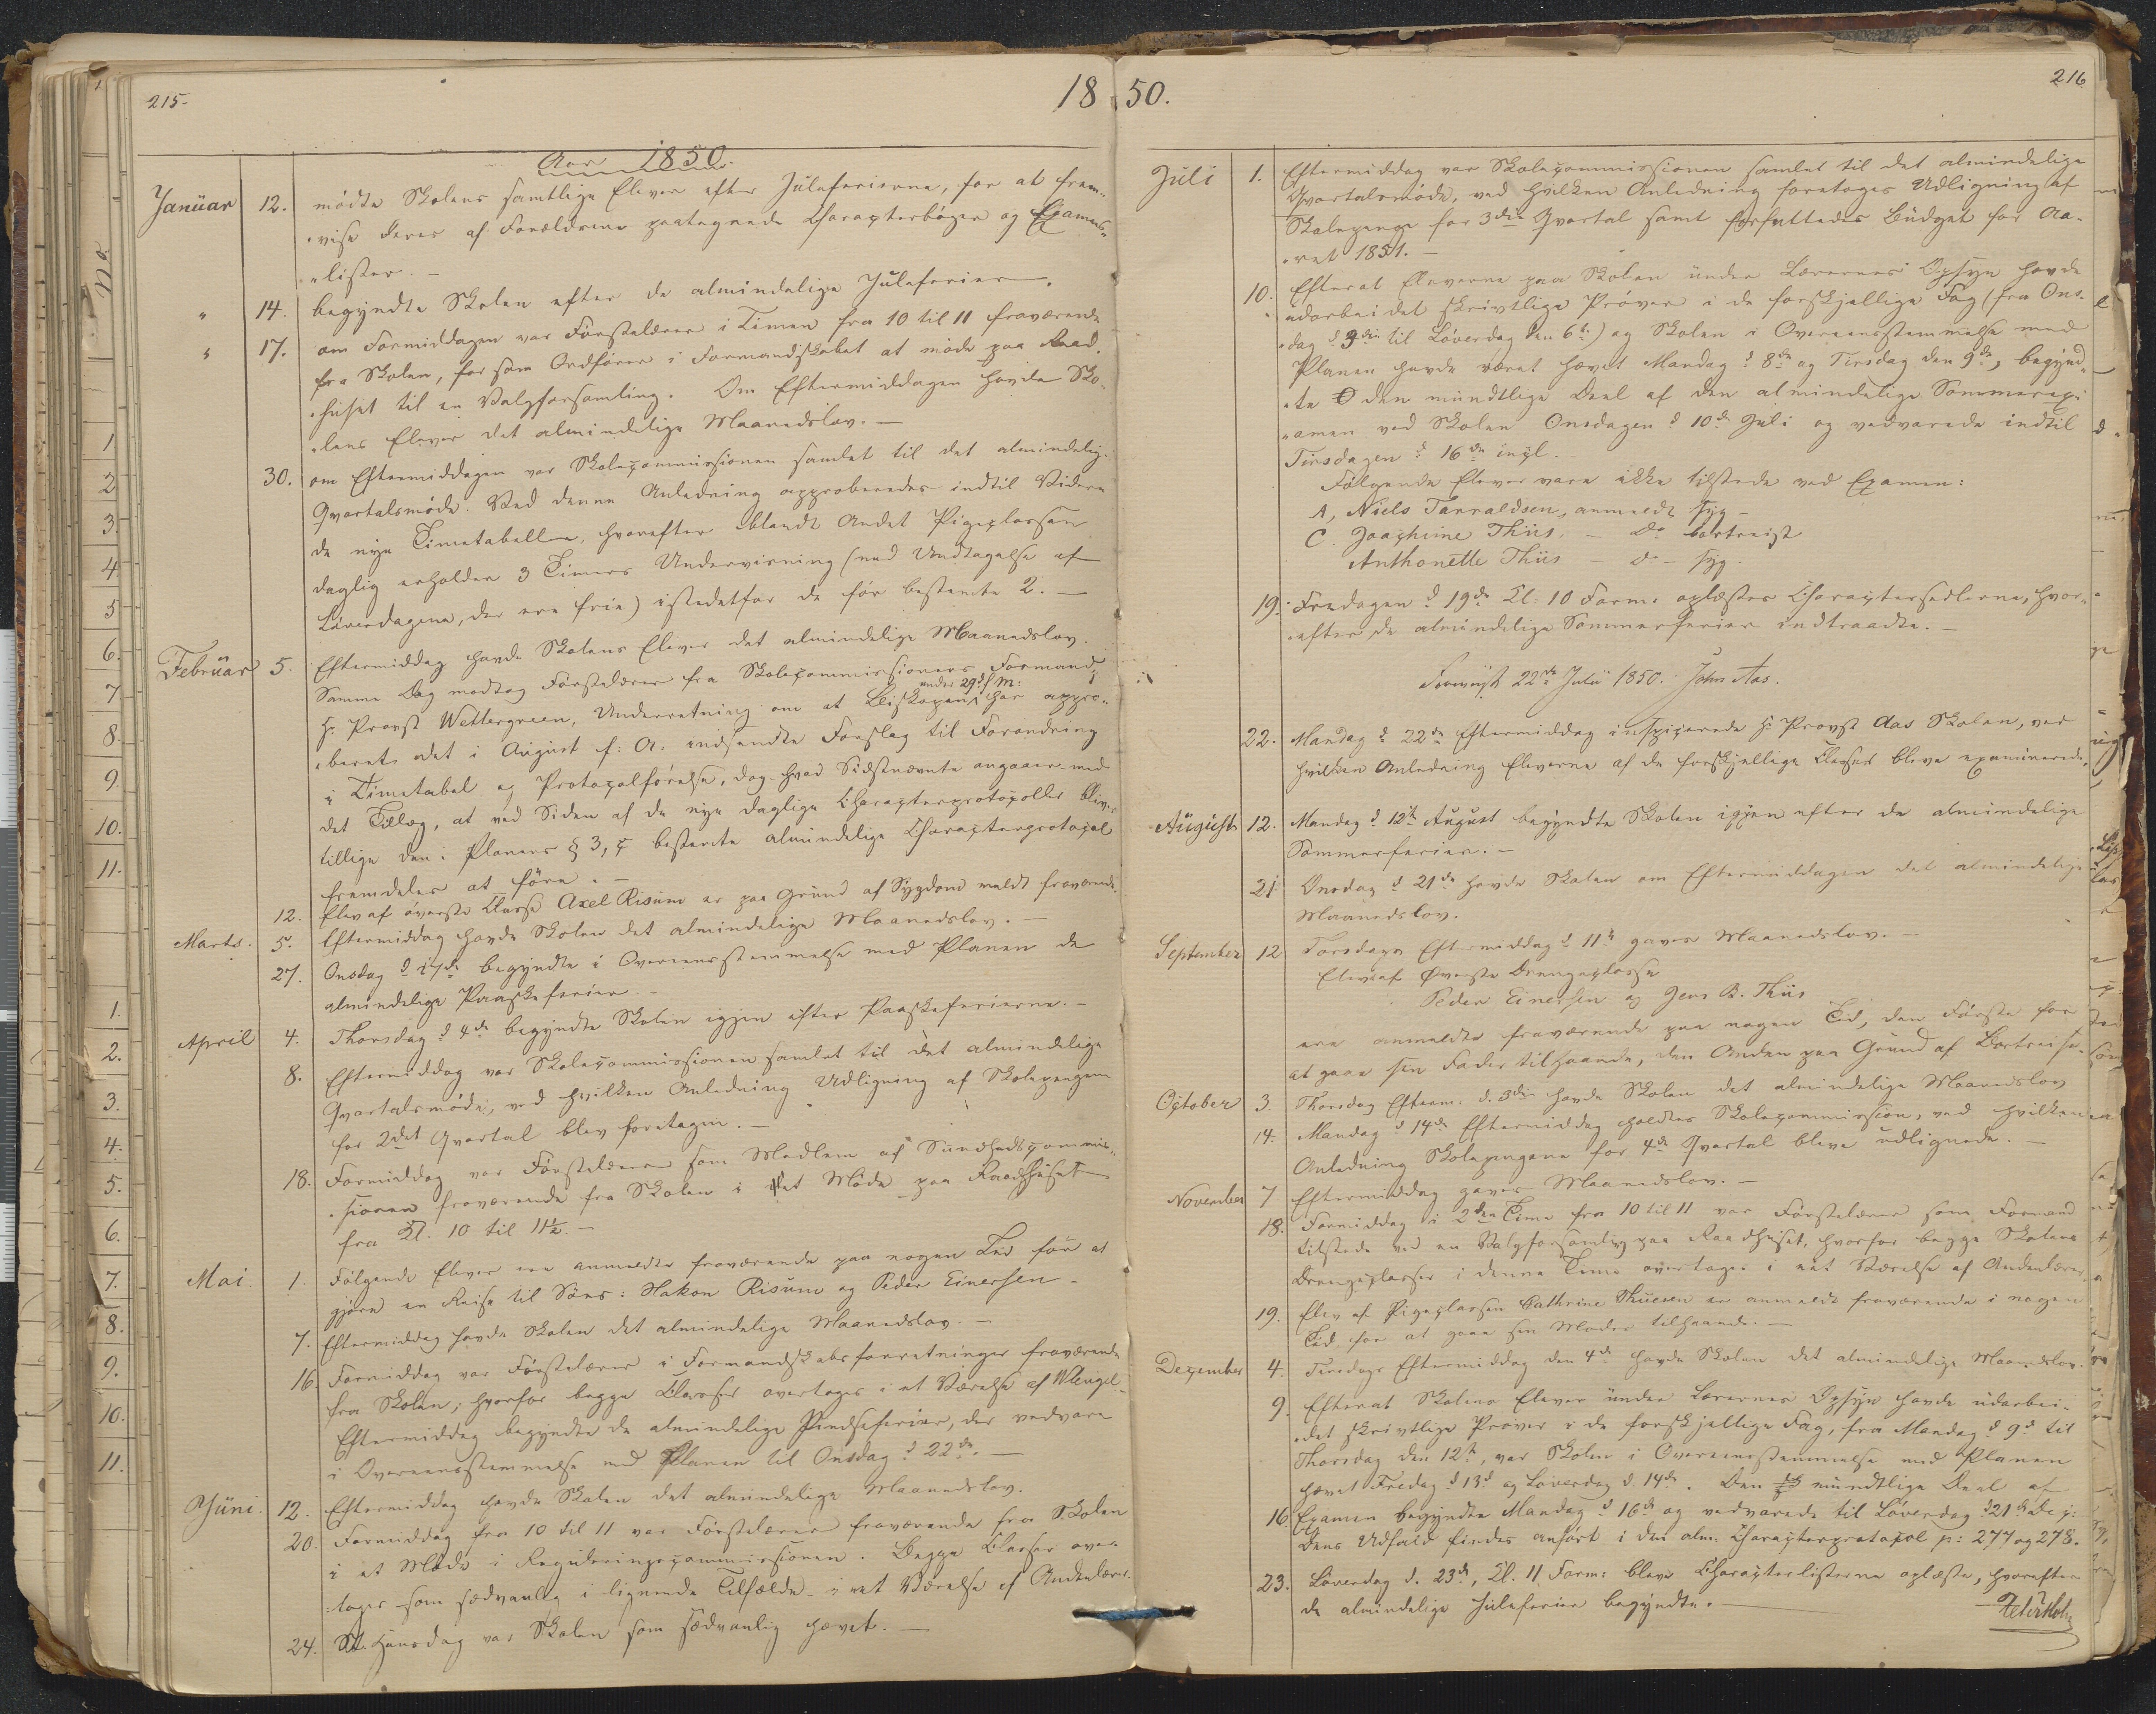 215.
18 50.
216
Aar 1850.
Januar 12. mødte Skolens samtlige Elever efter Juleferierne, for at frem-
"vise deres af Forældrene paategnede Characterbøger og Examens"
"lister. —
" 14. begyndte Skolen efter de almindelige Juleferier.
" 17. om Formiddagen var Førstelærer i Timen fra 10 til 11 fraværende
fra Skolen, for som Ordfører i Formandskabet at møde paa Raad-
"huset til en Valgforsamling. Om Eftermiddagen havde Sko-
"lens Elever det almindelige Maanedslov. —
30. om Eftermiddagen var Skolecommissionen samlet til det almindelige
Qvartalsmøde. Ved denne Anledning approberedes indtil Videre
de nye Timetabeller, hvorefter blandt Andet Pigeclassen
daglig erholder 3 Timers Undervisning (med Undtagelse af
Løverdagene, der ere frie) istedetfor de før bestemte 2. —
Februar 5. Eftermiddag havde Skolens Elever det almindelige Maanedslov.
Samme Dag modtog Førstelærer fra Skolecommissionens Formand,
Hr. Provst Wettergreen, Underretning om at Biskopen under 29 f. M. har appro-
"beret det i August f. A. indsendte Forslag til Forandring
i Timetabel og Protocolførelse, dog hvad Sidstnævnte angaaer med
det Tillæg, at ved Siden af de nye daglige Characterprotocoller bliver
tillige den i Planens § 3, c bestemte almindelige Characterprotocol
fremdeles at føre. —
12. Elev af øverste Classe Axel Risum er paa Grund af Sygdom meldt fraværende.
Marts. 5. Eftermiddag havde Skolen det almindelige Maanedslov. —
27. Onsdag d 27de begyndte i Overeensstemmelse med Planen de
almindelige Paaskeferier. —
April 4. Thorsdag d 4de begyndte Skolen igjen efter Paaskeferierne. —
8. Eftermiddag var Skolecommissionen samlet til det almindelige
Qvartalsmøde, ved hvilken Anledning Udligning af Skolepengene
for 2det Qvartal blev foretagen. —
18. Formiddag var Førstelærer som Medlem af Sundhedscommis-
"sionen fraværende fra Skolen i et Møde paa Raadhuset
fra Kl. 10 til 11½. —
Mai. 1. Følgende Elever ere anmeldte fraværende paa nogen Tid for at
gjøre en Reise til Søes: Hakon Risum og Peder Einersen —
7. Eftermiddag havde Skolen det almindelige Maanedslov. —
16. Formiddag var Førstelærer i Formandskabsforretninger fraværende
fra Skolen; hvorfor begge Classer overtoges i et Værelse af
Eftermiddag begyndte de almindelige Pindseferier, der vedvare
i Overeensstemmelse med Planen til Onsdag d 22de. —
Juni. 12. Eftermiddag havde Skolen det almindelige Maanedslov.
20. Formiddag fra 10 til 11 var Førstelærer fraværende fra Skolen
i et Møde i Reguleringscommissionen. Begge Classer over-
"toges som sædvanlig i lignende Tilfælde i eet Værelse af Andenlærer.
24. St. Hansdag var Skolen som sædvanlig hævet. —
Juli 1. Eftermiddag var Skolecommissionen samlet til det almindelige
Qvartalsmøde, ved hvilken Anledning foretoges Udligning af
Skolepenge for 3die Qvartal samt forfattedes Budget for Aa-
"ret 1851. —
10. Efterat Eleverne paa Skolen under Lærernes Opsyn havde
udarbeidet skrivtlige Prøver i de forskjellige Fag (fra Ons-
"dag d 3die til Løverdag den 6te) og Skolen i Overeensstemmelse med
Planen havde været hævet Mandag d 8de og Tirsdag den 9de, begynd-
"te den mundtlige Deel af den almindelige Sommerex-
"amen ved Skolen Onsdagen d 10de Juli og vedvarede indtil
Tirsdagen d 16de incl. —
Følgende Elever vare ikke tilstede ved Examen:
A, Niels Tarraldsen, anmeldt syg —
C. Joachime Thiis, — Do bortreist
Anthonette Thiis — Do — syg.
19. Fredagen d 19de Kl: 10 Form: oplæstes Charactersedlerne, hvor-
"efter de almindelige Sommerferier indtraadte. —
22de Julii 1850. John Aas.
22. Mandag d 22de Eftermiddag inspicerede Hr. Provst Aas Skolen, ved
hvilken Anledning Eleverne af de forskjellige Classer bleve examinerede.
August 12. Mandag d 12te August begyndte Skolen igjen efter de almindelige
Sommerferier. —
21. Onsdag d 21de havde Skolen om Eftermiddagen det almindelige
Maanedslov.
September 12 Torsdags Eftermiddag d 11te gaves Maanedslov. —
Elev af øverste Drengeclasse
Peder Einersen og Jens B. Thiis
ere anmeldte fraværende paa nogen Tid, den Første for
at gaae sin Fader tilhaande, den Anden paa Grund af Bortreise.
October 3. Thorsdag Efterm: d. 3die havde Skolen det almindelige Maanedslov
14. Mandag d 14de Eftermiddag holdtes Skolecommission, ved hvilken
Anledning Skolepengene for 4de Qvartal bleve udlignede. —
November 7 Eftermiddag gaves Maanedslov. —
18. Formiddag i 2den Time fra 10 til 11 var Førstelærer som Formand
tilstede ved en Valgforsamling paa Raadhuset, hvorfor begge Skolens
Drengeclasser i denne Time overtoges i eet Værelse af Andenlærer.
19. Elev af Pigeclassen Cathrine Thuesen er anmeldt fraværende i nogen
Tid for at gaae sin Moder tilhaande. —
December 4. Tirsdags Eftermiddag den 4de havde Skolen det almindelige Maanedslov.
9. Efterat Skolens Elever under Lærernes Opsyn havde udarbei-
"det skrivtlige Prøver i de forskjellige Fag, fra Mandag d 9de til
Thorsdag den 12te, var Skolen i Overeensstemmelse med Planen
hævet Fredag d 13de og Løverdag d. 14de. Den mundtlige Deel af
16. Examen begyndte Mandag d 16de og vedvarede til Løverdag d 21de Dec:
Dens Udfald findes anført i den alm: Characterprotocol p: 277 og 278.
23. Løverdag d. 23de, Kl. 11 Form: bleve Characterlisterne oplæste, hvorefter
de almindelige Juleferier begyndte. —